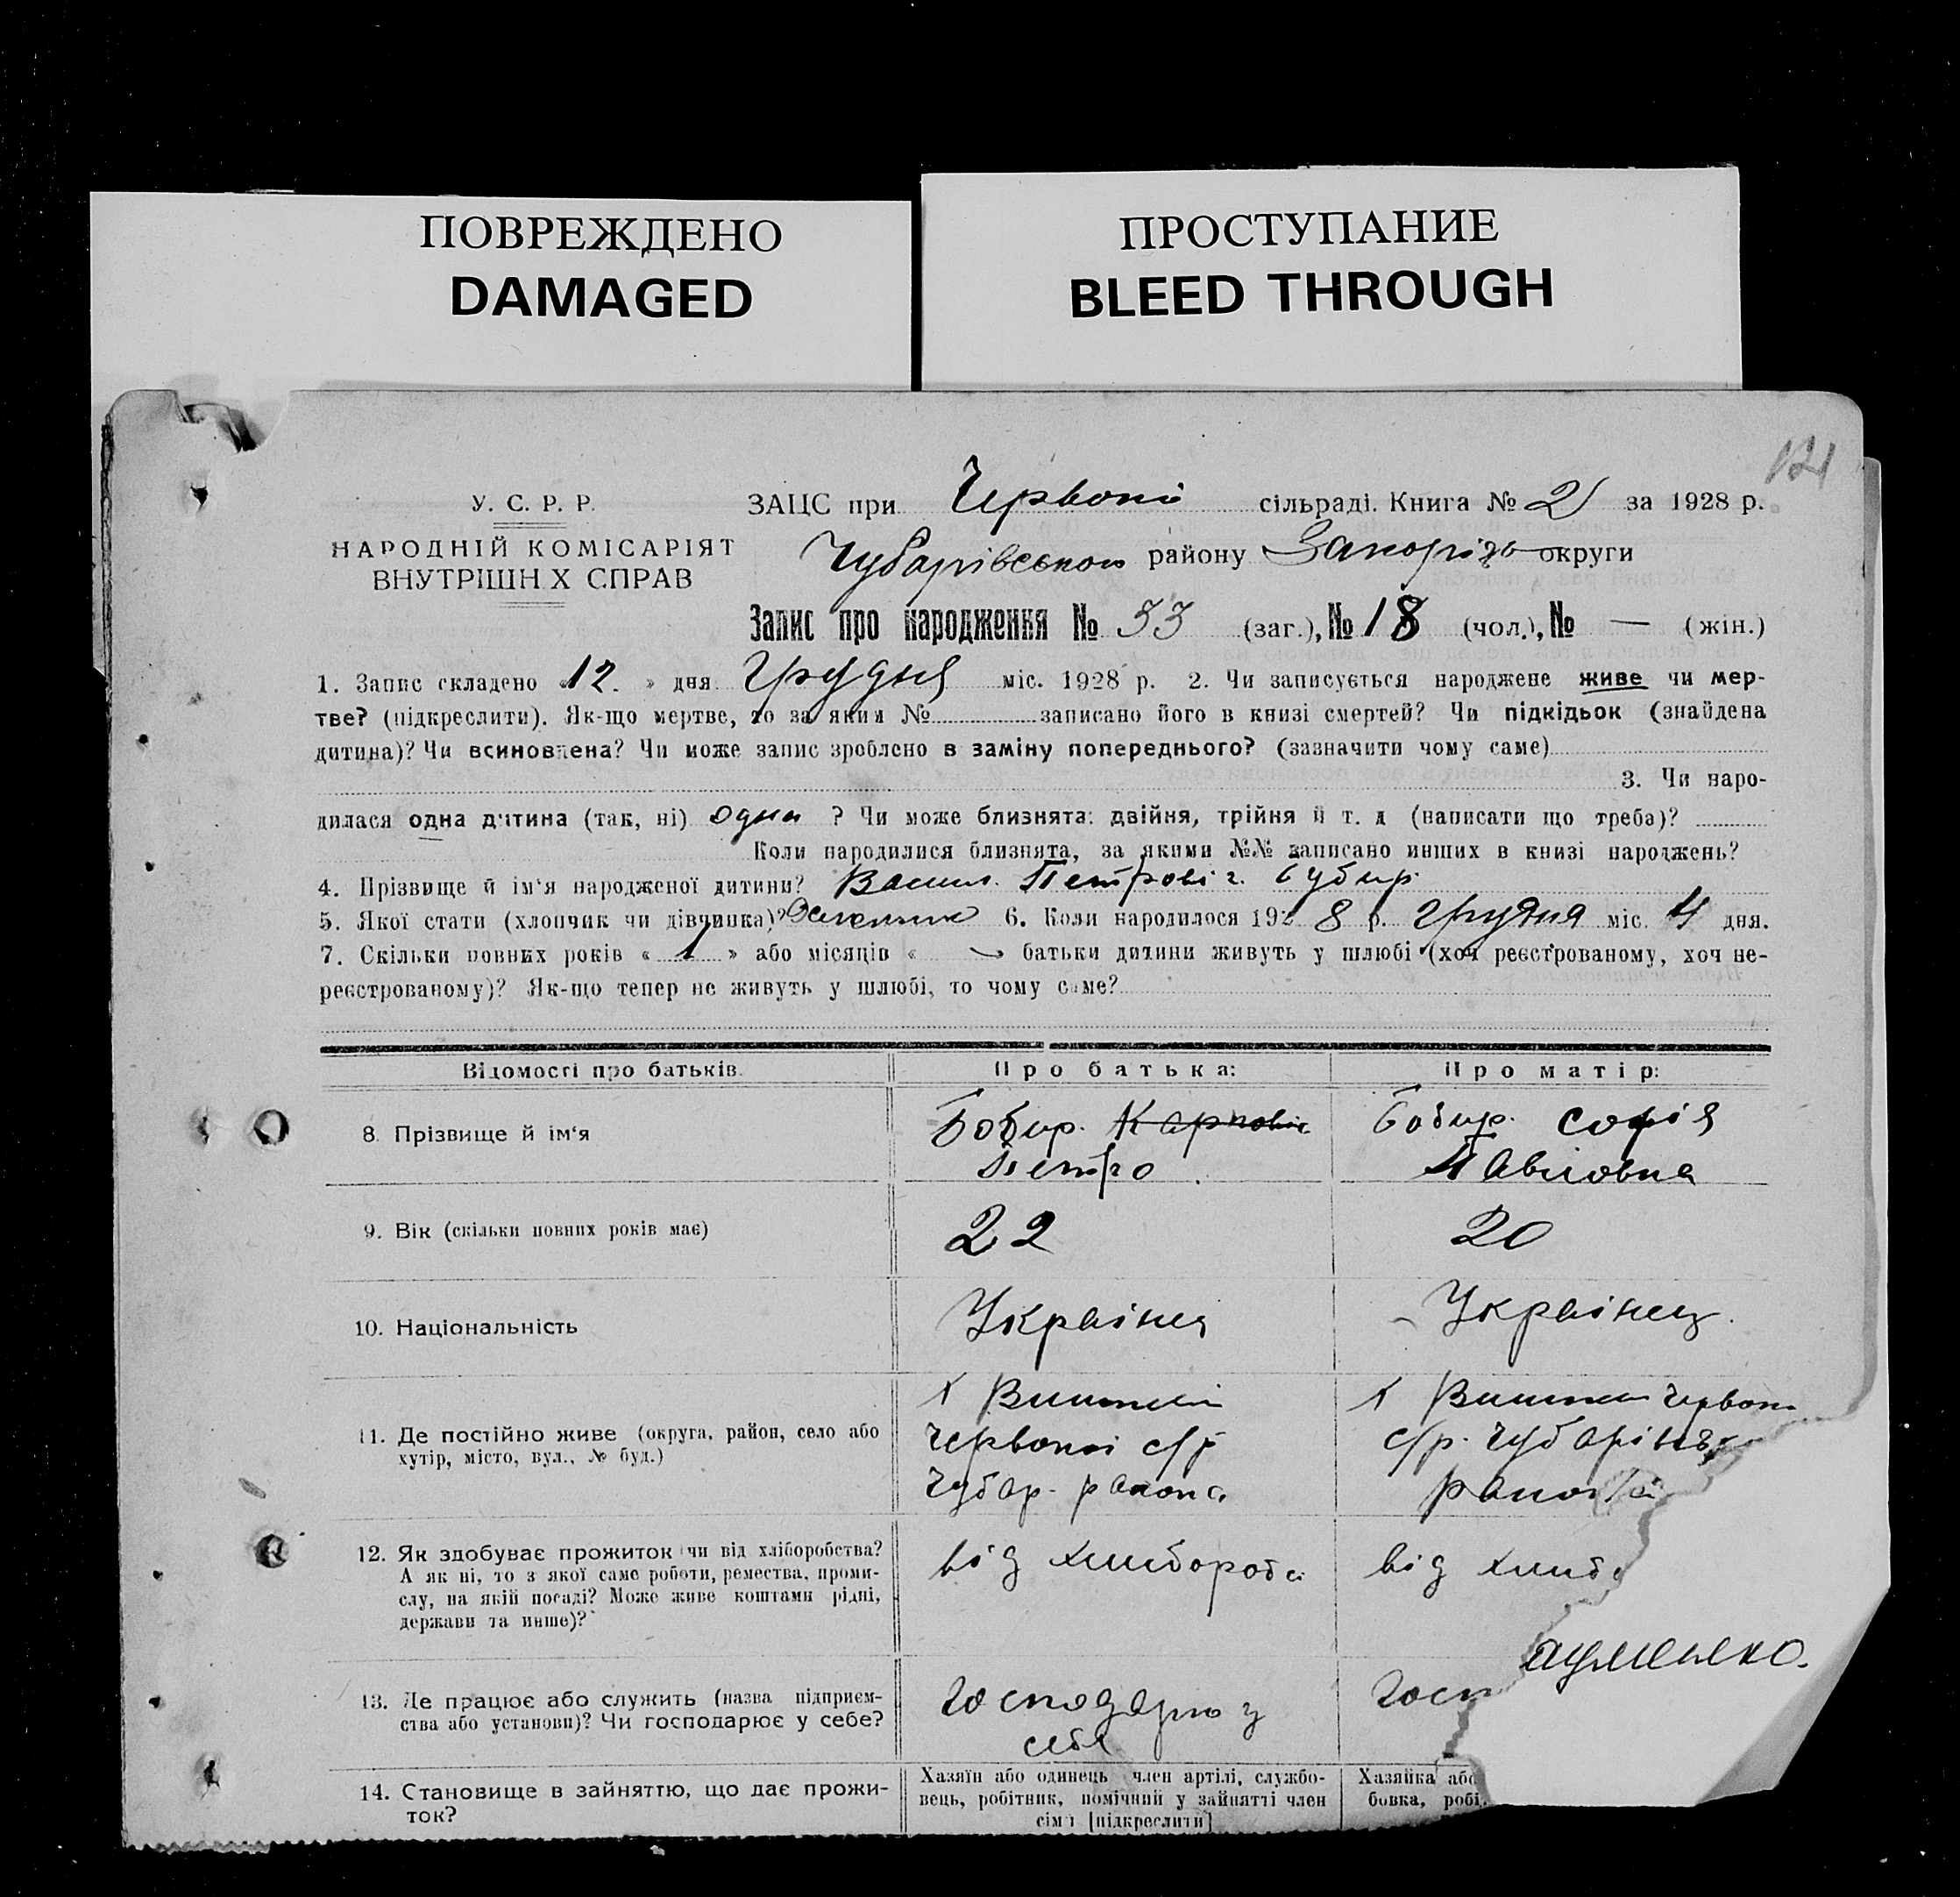 ПОВРЕЖДЕНО
DAMAGED
ПРОСТУПАНИЕ
BLEED THROUGH
121
У. С. Р. Р.
НАРОДНІЙ КОМІСАРІЯТ
ВНУТРІШН Х СПРАВ
ЗАЦС при Червоні сільраді. Книга № 2 за 1928 р.
Чубарівського району округи
Запис про народження № 33 (заг.), № 18 (чол.), № — (жін.)
1. Запис складено « 12. » дня Грудня міс. 1928 р. 2. Чи записується народжене живе чи мер-
тве? (підкреслити). Як-що мертве, то за яким № записано його в книзі смертей? Чи підкідьок (знайдена
дитина)? Чи всиновлена? Чи може запис зроблено в заміну попереднього? (зазначити чому саме)
3. Чи наро-
дилася одна дитина (так, ні) одна ? Чи може близнята: двійня, трійня й т. д (написати що треба)?
Коли народилися близнята, за якими №№ записано инших в книзі народжень?
4. Прізвище й ім'я народженої дитини? Васил. Петрові
5. Якої стати (хлопчик чи дівчинка)? 6. Коли народилося 192 8 р. Грудня міс. 4 дня.
7. Скільки повних років « 1 » або місяців « батьки дитини живуть у шлюбі (хоч реєстрованому, хоч не-
реєстрованому)? Як-що тепер не живуть у шлюбі, то чому саме?
Відомості про батьків. Про батька: Про матір:
8. Прізвище й ім'я
Бобир. Карпович
Петро
Бобир. Софія
Павловна
9. Вік (скільки повних років має) 22 20
10. Національність Україне Українец
11. Де постійно живе (округа, район, село або
хутір, місто, вул., № буд.)
Червоної с/р
Чубар. района
Червон
с/р. Чубарівск
12. Як здобуває прожиток чи від хліборобства?
А як ні, то з якої саме роботи, ремества, проми-
слу, на якій посаді? Може живе коштами рідні,
держави та инше)?
від хлибороба
від хлиб
ауменко.
13. Де працює або служить (назва підприєм-
ства або установи)? Чи господарює у себе?
Господарю у
себя
Госп
14. Становище в зайняттю, що дає прожи-
ток?
Хазяїн або одинець член артілі, службо-
вець, робітник, помічний у зайнятті член
сім'ї [підкреслити]
Хазяйка або
бовка, робі